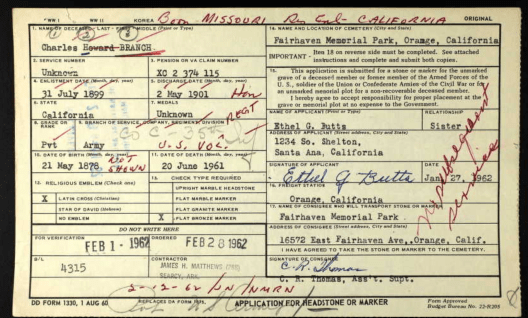 WW I WW II KOREA Born MISSOURI Res Enl - CALIFORNIA ORIGINAL
1. NAME OF DECEASED - LAST - FIRST - MIDDLE (Print or Type)
Charles Howard BRANCH
14. NAME AND LOCATION OF CEMETERY (City and State)
Fairhaven Memorial Park, Orange, California
IMPORTANT - Item 18 on reverse side must be completed. See attached instructions and complete and submit both copies.
2. SERVICE NUMBER
Unknown
3. PENSION OR VA CLAIM NUMBER
XC 2 374 115
15. This application is submitted for a stone or marker for the unmarked grave of a deceased member or former member of the Armed Forces of the U.S., soldier of the Union or Confederate Armies of the Civil War or for an unmarked memorial plot for a non-recovered deceased member.
I hereby agree to accept responsibility for proper placement at the grave or memorial plot at no expense to the Government.
4. ENLISTMENT DATE (Month, day, year)
31 July 1899
5. DISCHARGE DATE (Month, day, year)
2 May 1901 Hon
6. STATE
California
7. MEDALS
Unknown
NAME OF APPLICANT (Print or Type)
Ethel G. Butts
RELATIONSHIP
Sister
8. GRADE OR RANK
Pvt
9. BRANCH OF SERVICE, COMPANY, REGIMENT, DIVISION
Army
Co C 35th Inf REGT
U.S. VOL.
ADDRESS OF APPLICANT (Street address, City and State)
1234 So. Shelton,
Santa Ana, California
10. DATE OF BIRTH (Month, day, year)
21 May 1878 NOT SHOWN
11. DATE OF DEATH (Month, day, year)
20 June 1961
SIGNATURE OF APPLICANT
Ethel G Butts
DATE
Jan. 27, 1962
no subsequent service
12. RELIGIOUS EMBLEM (Check one)
X LATIN CROSS (Christian)
STAR OF DAVID (Hebrew)
NO EMBLEM
13. CHECK TYPE REQUIRED
UPRIGHT MARBLE HEADSTONE
FLAT MARBLE MARKER
FLAT GRANITE MARKER
X FLAT BRONZE MARKER
16. FREIGHT STATION
Orange, California
17. NAME OF CONSIGNEE WHO WILL TRANSPORT STONE OR MARKER
Fairhaven Memorial Park
ADDRESS OF CONSIGNEE (Street address, City and State)
16572 East Fairhaven Ave., Orange, Calif.
I HAVE AGREED TO TAKE THE STONE OR MARKER TO THE CEMETERY.
DO NOT WRITE HERE
FOR VERIFICATION
FEB 1 - 1962
ORDERED
FEB 28 1962
B/L
4315
CONTRACTOR
JAMES H. MATTHEWS
SEARCY, ARK.
SIGNATURE OF CONSIGNEE
C. R. Thomas
C. R. Thomas, Ass't. Supt.
2-12-62
DD FORM 1330, 1 AUG 60
REPLACES DA FORM
APPLICATION FOR HEADSTONE OR MARKER
Form Approved
Budget Bureau No. 22-R205